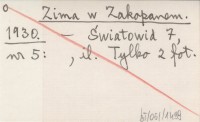 Zima w Zakopanem.
1930. — Światowid 7,
nr 5: , il. Tylko 2 fot.